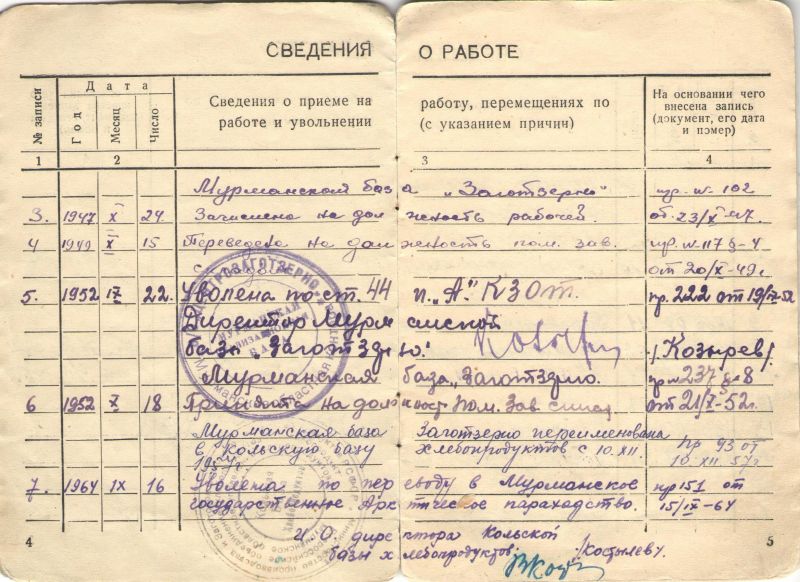 СВЕДЕНИЯ О РАБОТЕ
№ записи
Дата
Год
Месяц
Число
Сведения о приеме на работу, перемещениях по
работе и увольнении (с указанием причин)
На основании чего
внесена запись
(документ, его дата
и номер)
1 2 3 4
Мурманская база „Заготзерно" пр. № 102
3. 1947 X 24 Зачислена на должность рабочей. от 23/X-47.
4 1949 X 15 Переведена на должность пом. зав. пр. №117 §-4
от 20/X-49г.
5. 1952 IV 22. Уволена по ст. 44 п. „А." КЗОТ. пр. 222 от 19/IV-52
Директор Мурманской
базы Заготзерно: /Козырев/
Мурманская база „Заготзерно. пр. 237 §-8
6 1952 X 18 Принята на должность пом. зав. от 21/X-52г.
Мурманская база Заготзерно переименована
в Кольскую базу хлебопродуктов с 10.XII. пр 93 от
1957г. 10.XII.57г
7. 1964 IX 16 Уволена по переводу в Мурманское пр 151 от
государственное Арктическое пароходство. 15/IX-64
И.О. директора Кольской
базы хлебопродуктов: /Костылев/.
4 5